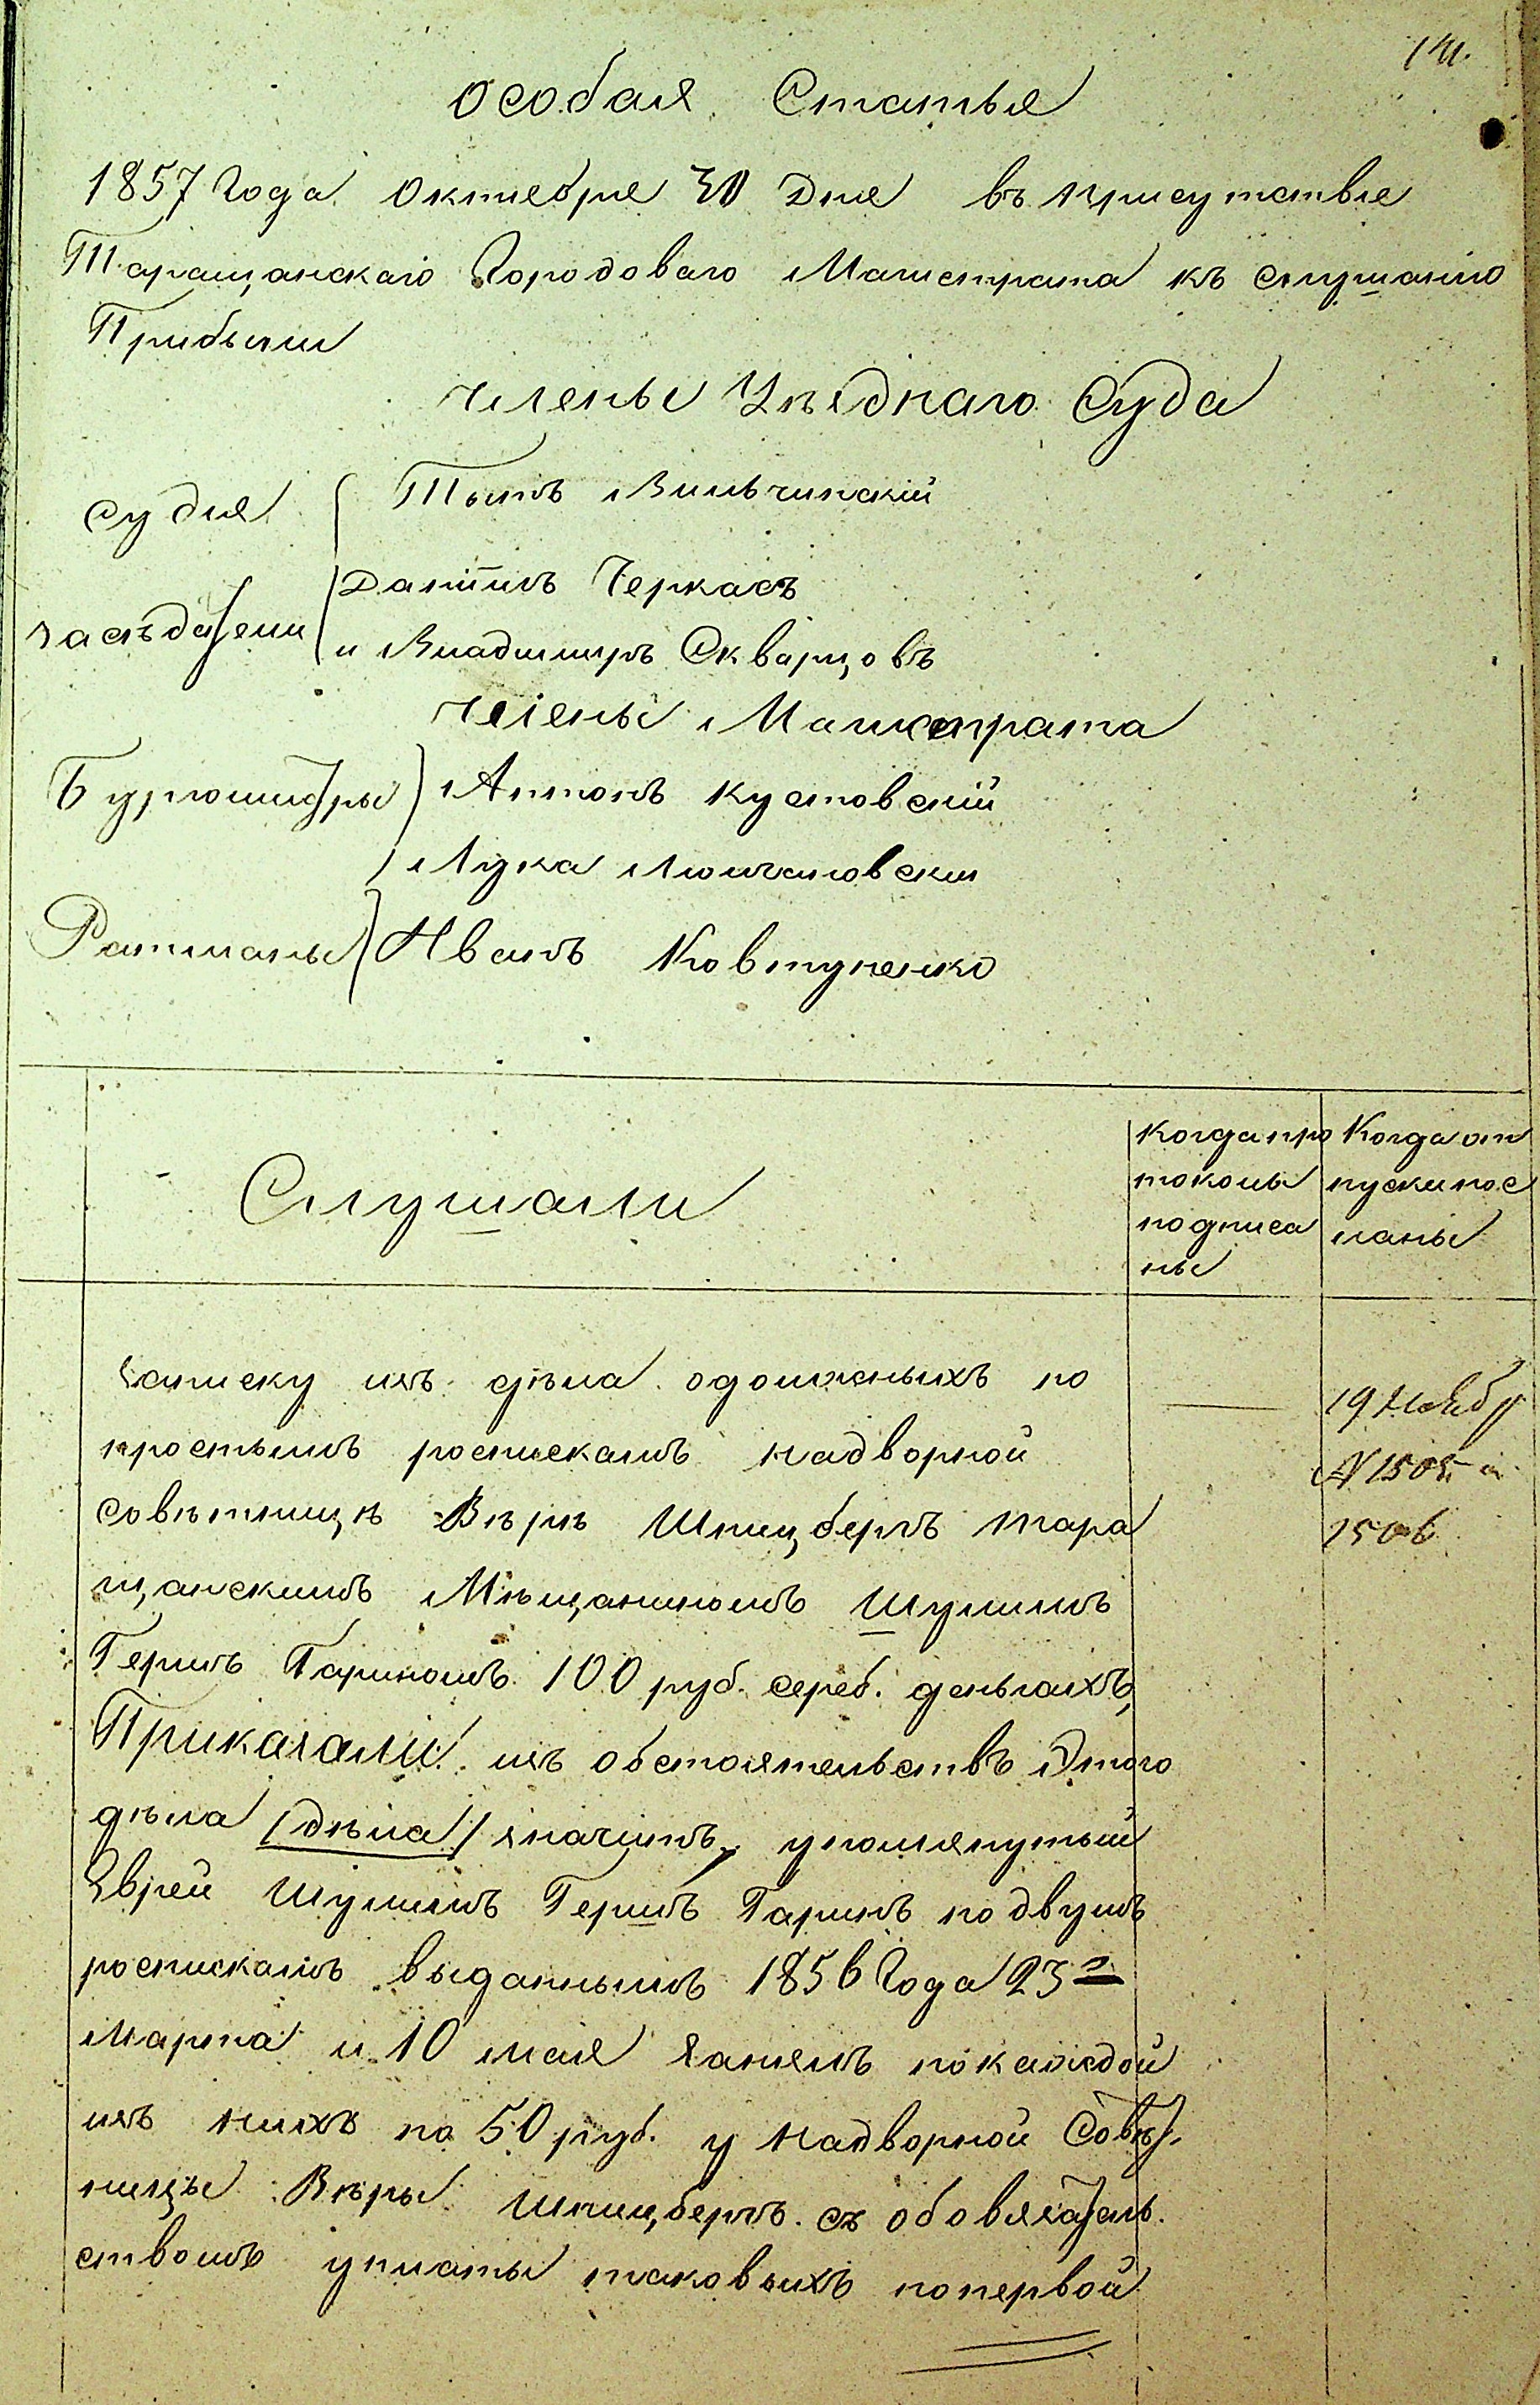 особая Статья
1857 Года Октебря 30 Дня въ присутствіе
Таращанскаго Городоваго Магистрата къ слушанію
Прибыли
члены Уѣзднаго Суда
Судья Вильчинскій
Даніилъ Черкасъ
засѣдатели
и Владимиръ Скварцовъ
члены Магистрата
Бургомистры Антонъ Кустовскій
Лука
Ратманы Иванъ Ковтуненко
Слушали
Когда про
токолы
подписа
ны
Когда от
пуски пос
ланы
записку изъ дѣла одолженыхъ по
простымъ роспискамъ надворной
совѣтницѣ Вѣрѣ Шпицбергъ тара
щанскимъ Мѣщаниномъ Шулимъ
Гершъ Гариномъ 100 руб. сереб. деньгахъ,
Приказали: изъ обстоятельствъ Этого
дѣла /дѣла/ значитъ, упомянутый
Еврей Шулимъ Гершъ Гаринъ по двумъ
роспискамъ выданнымъ 1856 Года 23го
Марта и 10 мая занялъ по каждой
изъ нихъ по 50 руб. у надворной Совѣт.
ницы Вѣры Шпицбергъ. съ обовязатель.
ствомъ уплаты таковыхъ по первой
19 Ноябр
N 1505 и
1506